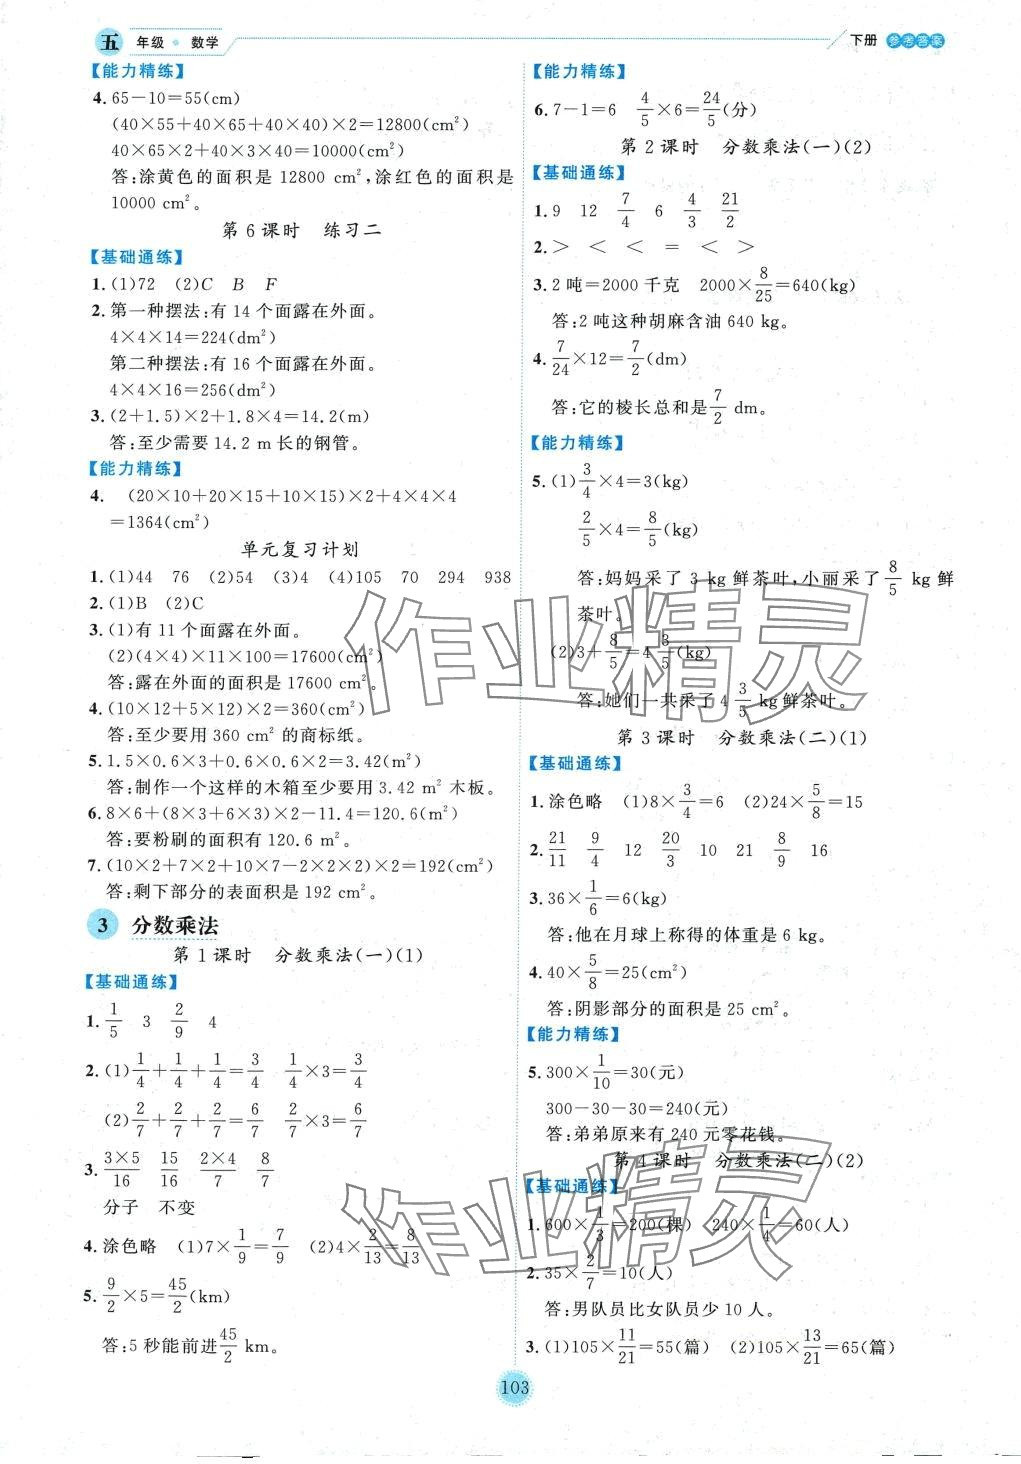 五 年级 · 数学
下册 参考答案
【能力精练】
4. 65－10＝55(cm)
(40×55＋40×65＋40×40)×2＝12800(cm²)
40×65×2＋40×3×40＝10000(cm²)
答:涂黄色的面积是 12800 cm²,涂红色的面积是
10000 cm²。
第 6 课时　练习二
【基础通练】
1. (1)72　(2)C　B　F
2. 第一种摆法:有 14 个面露在外面。
4×4×14＝224(dm²)
第二种摆法:有 16 个面露在外面。
4×4×16＝256(dm²)
3. (2＋1.5)×2＋1.8×4＝14.2(m)
答:至少需要 14.2 m 长的钢管。
【能力精练】
4.　(20×10＋20×15＋10×15)×2＋4×4×4
＝1364(cm²)
单元复习计划
1. (1)44　76　(2)54　(3)4　(4)105　70　294　938
2. (1)B　(2)C
3. (1)有 11 个面露在外面。
(2)(4×4)×11×100＝17600(cm²)
答:露在外面的面积是 17600 cm²。
4. (10×12＋5×12)×2＝360(cm²)
答:至少要用 360 cm² 的商标纸。
5. 1.5×0.6×3＋0.6×0.6×2＝3.42(m²)
答:制作一个这样的木箱至少要用 3.42 m² 木板。
6. 8×6＋(8×3＋6×3)×2－11.4＝120.6(m²)
答:要粉刷的面积有 120.6 m²。
7. (10×2＋7×2＋10×7－2×2×2)×2＝192(cm²)
答:剩下部分的表面积是 192 cm²。
3 分数乘法
第 1 课时　分数乘法(一)(1)
【基础通练】
1. 1/5　3　2/9　4
2. (1)1/4＋1/4＋1/4＝3/4　1/4×3＝3/4
(2)2/7＋2/7＋2/7＝6/7　2/7×3＝6/7
3. 3×5/16　15/16　2×4/7　8/7
分子　不变
4. 涂色略　(1)7×1/9＝7/9　(2)4×2/13＝8/13
5. 9/2×5＝45/2(km)
答:5 秒能前进45/2 km。
【能力精练】
6. 7－1＝6　4/5×6＝24/5(分)
第 2 课时　分数乘法(一)(2)
【基础通练】
1. 9　12　7/4　6　4/3　21/2
2. ＞　＜　＜　＝　＜　＞
3. 2 吨＝2000 千克　2000×8/25＝640(kg)
答:2 吨这种胡麻含油 640 kg。
4. 7/24×12＝7/2(dm)
答:它的棱长总和是7/2 dm。
【能力精练】
5. (1)3/4×4＝3(kg)
2/5×4＝8/5(kg)
答:妈妈采了 3 kg鲜茶叶,小丽采了8/5 kg 鲜
茶叶。
(2)3＋8/5＝4 3/5(kg)
答:她们一共采了 4 3/5 kg鲜茶叶。
第 3 课时　分数乘法(二)(1)
【基础通练】
1. 涂色略　(1)8×3/4＝6　(2)24×5/8＝15
2. 21/11　9/4　12　20/3　10　21　8/9　16
3. 36×1/6＝6(kg)
答:他在月球上称得的体重是 6 kg。
4. 40×5/8＝25(cm²)
答:阴影部分的面积是 25 cm²。
【能力精练】
5. 300×1/10＝30(元)
300－30－30＝240(元)
答:弟弟原来有 240 元零花钱。
第 4 课时　分数乘法(二)(2)
【基础通练】
1. 600×1/3＝200(棵)　240×1/4＝60(人)
2. 35×2/7＝10(人)
答:男队员比女队员少 10 人。
3. (1)105×11/21＝55(篇)　(2)105×13/21＝65(篇)
103
作业精灵
作业精灵